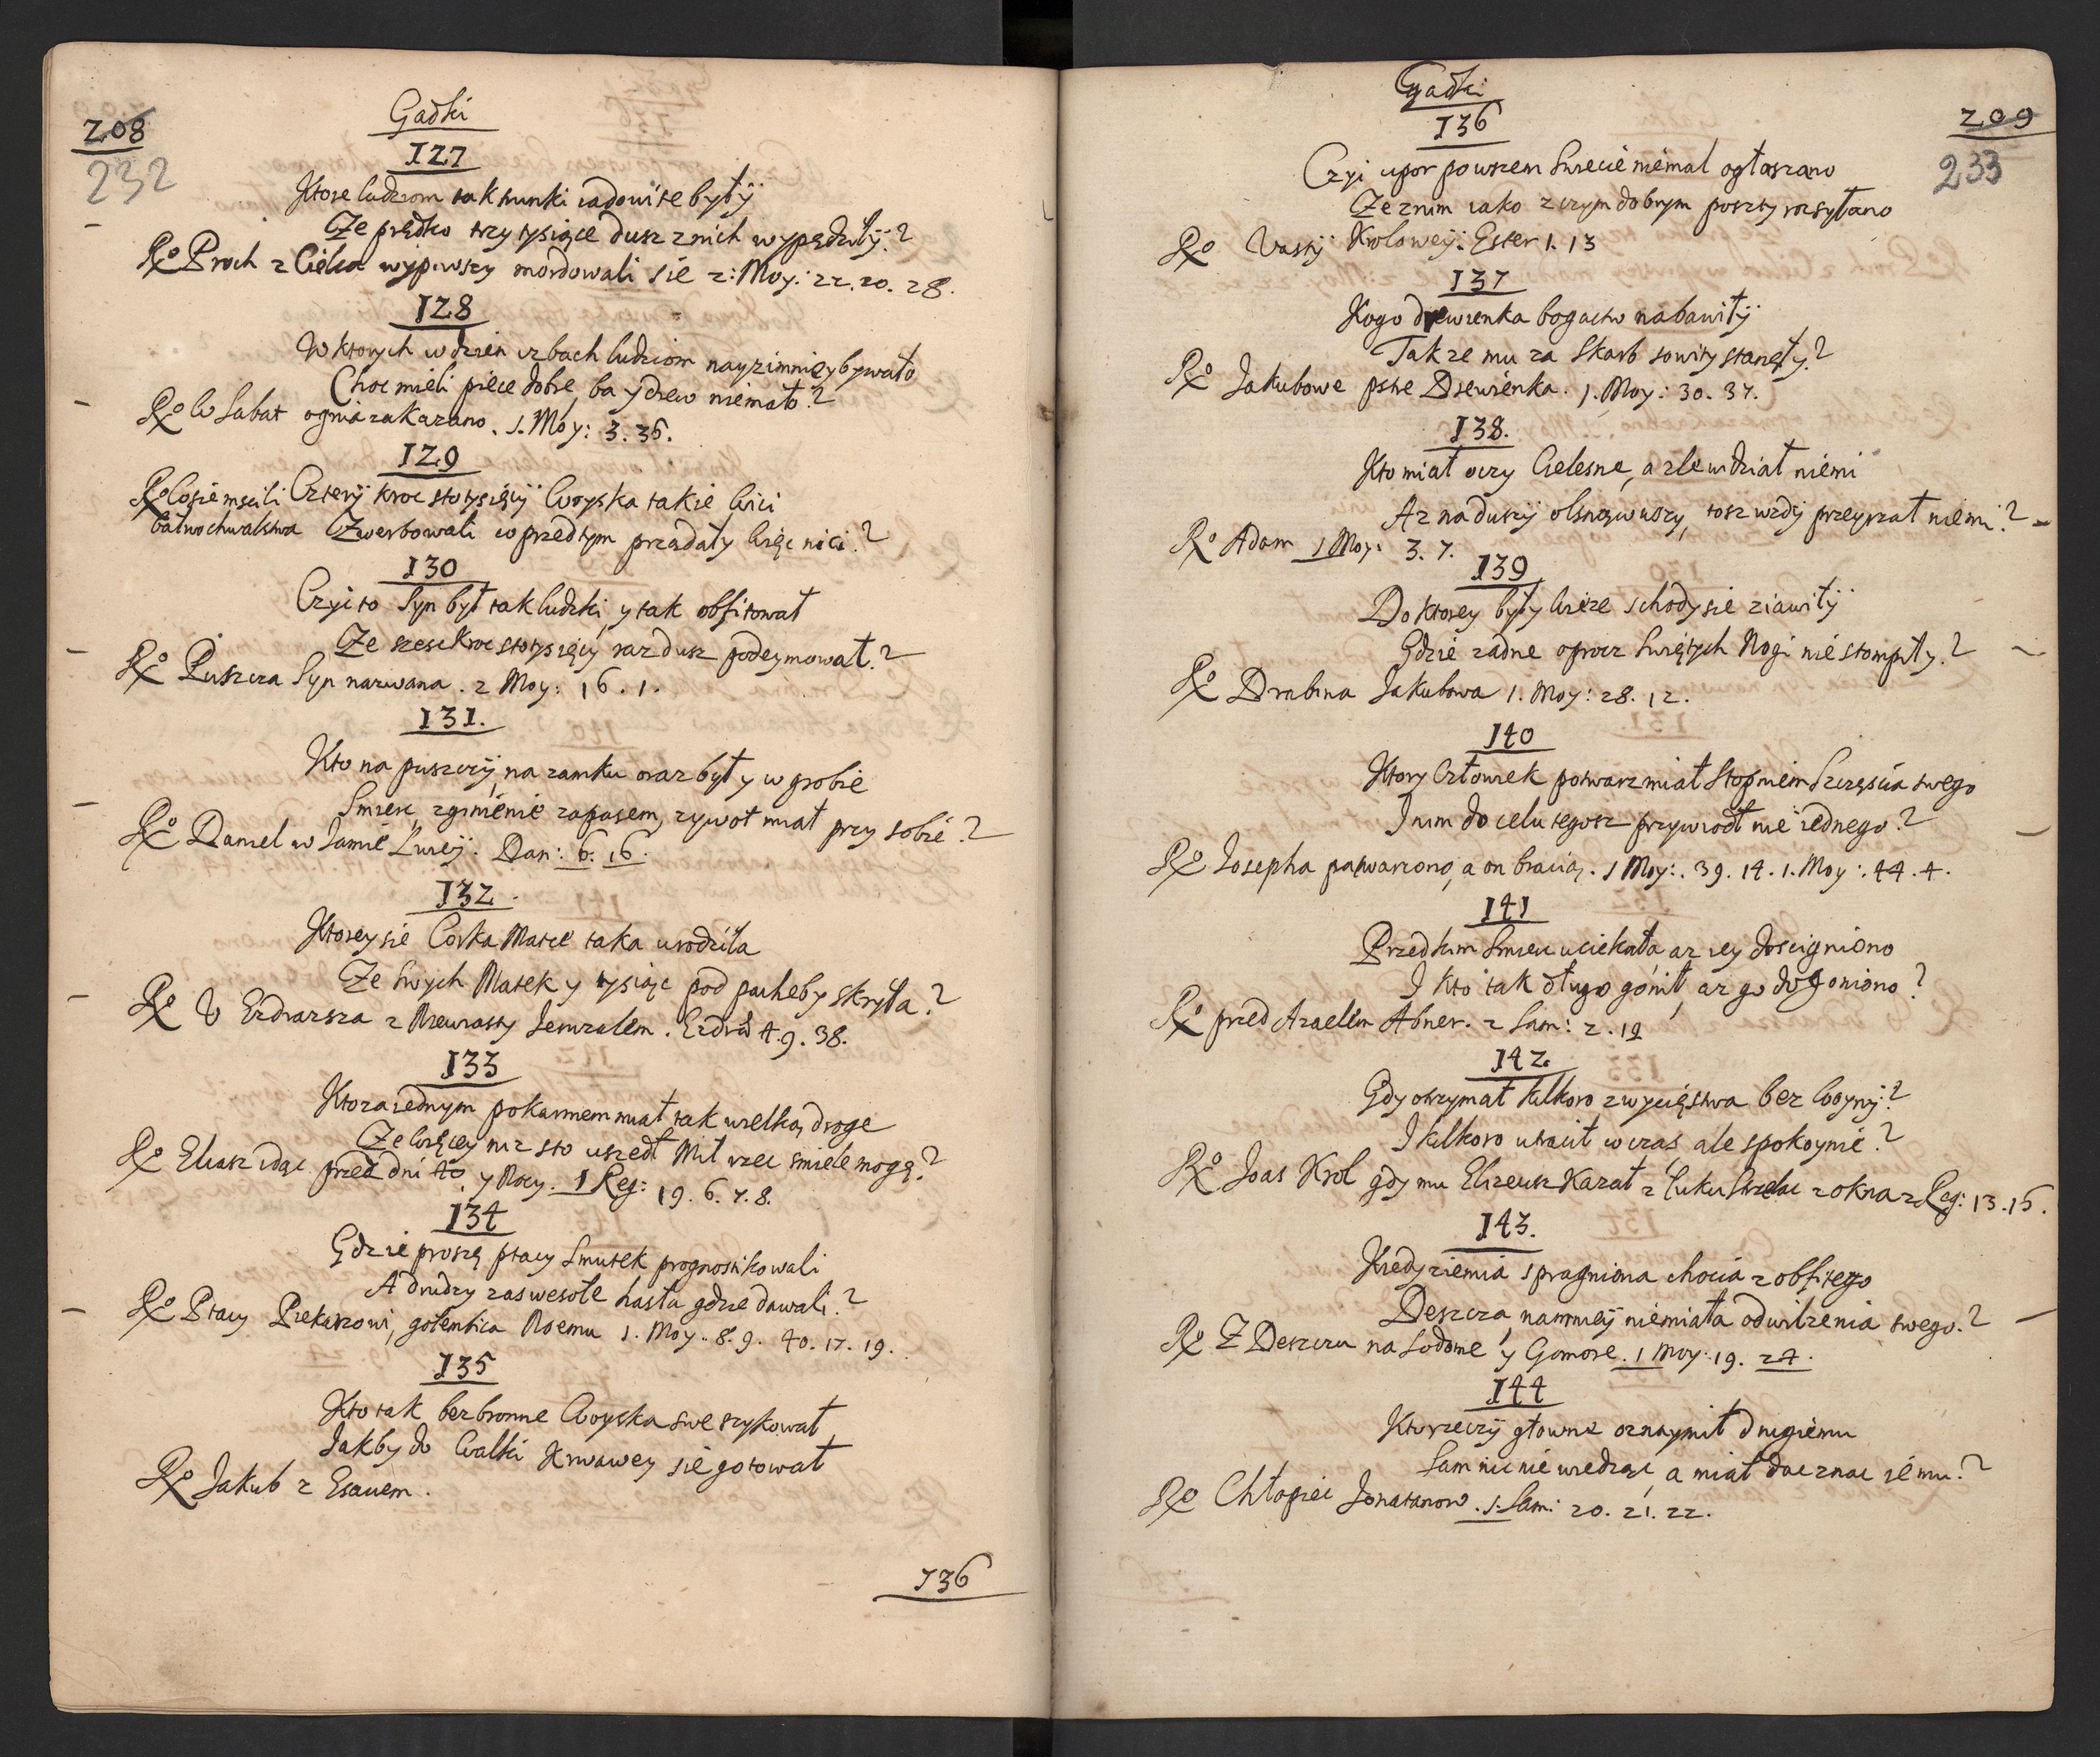 208
232
Gadki
127
Ktore ludziom tak trunki iadowite byłÿ
Ze prędko trzy tysiące dusz z nich wypędziłÿ?
Rx Proch z Cielca wypiwszy mordowali sie 2: Moy: 22. 20. 28.
128
W ktorych w dzien izbach ludziom nayzimniey bywało
Choc mieli piece dobre, ba y drew niemało?
Rx W Sabat ognia zakazano. 1. Moy: 3. 35.
129
Czterÿ kroc sto tysięcÿ Woyska takie Wici
Zwerbowali co przedtym przędały więc nici?
Rx Co sie mscili
bałwochwalstwa
130
Czyi to Syn był tak ludzki, y tak obfitował
Ze szesc kroc sto tysięcy raz dusz podeymował?
Rx Puszcza Syn nazwana. 2 Moy: 16. 1.
131.
Kto na puszczÿ, na zamku oraz był y w grobie
Smierc, zginienie zapasem, zywot miał przy sobie?
Rx Daniel w Jamie Lwieÿ. Dan: 6. 16.
132.
Ktorey sie Corka Matce taka urodziła
Ze swych Matek y tysiąc pod pacheby skryła?
Rx U Ezdrasza z Niewiasty Jeruzalem. Ezdras 4. 9. 38.
133
Kto za iednym pokarmem miał tak wielką droge
Ze więcey niz sto uszedł Mil rzec smiele mogę?
Rx Eliasz idąc przez dni 40. y Nocy. 1 Reg: 19. 6. 7. 8.
134
Gdzie proszę ptacy Smutek prognostikowali
A drudzy zas wesołe hasła gdzie dawali?
Rx Ptacy Piekarzowi, gołembica Noemu 1. Moy. 8. 9. 40. 17. 19.
135
Kto tak bezbronne Woyska swe szykował
Jakby do Walki Krwawey sie gotował
Rx Jakub z Esauem.
136
209
233
Gadki
136
Czyi upor po wszem Swiecie niemal ogłaszano
Ze z nim iako z czym dobrym poszty rozsyłano
Rx Vastÿ Kroloweÿ. Ester 1. 13
137
Kogo drewienka bogactw nabawiłÿ
Tak ze mu za Skarb sowity stanęły?
Rx Jakubowe pstre Drewienka. 1. Moy: 30. 37.
138.
Kto miał oczy Cielesne, a zle widział niemi
Az na duszÿ olsnąwszy, tosz wzdÿ przeyrzał niemi?
Rx Adam 1 Moy: 3. 7.
139
Do ktorey były Wieze schody sie ziawiłÿ
Gdzie zadne oprocz Swiętych Nogi nie stompiły?
Rx Drabina Jakubowa 1. Moy: 28. 12.
140
Ktory Człowiek potwarz miał Stopniem Szczęscia swego
I nim do celu tegosz przywiodł nie iednego?
Rx Josepha potwarzono, a on bracią. 1 Moy:. 39. 14. 1. Moy:. 44. 4.
141
Przed kim Smierc uciekała az iey doscigniono
I kto tak długo gonił, az go dogoniono?
Rx przed Azaelem Abner. 2 Sam: 2. 19
142.
Gdy otrzymał kilkoro zwycięstwa bez Woynÿ?
I kilkoro utracił wczas, ale spokoynie?
Rx Joas Krol gdy mu Elizeusz Kazał z Łuku Strzelac z okna 2 Reg: 13. 15.
143.
Kiedy ziemia spragniona chocia z obfitego
Deszcza, namnieÿ niemiała odwilzenia swego?
Rx Z Deszczu na Sodome y Gomore. 1 Moy. 19. 24.
144
Kto rzeczÿ głowne oznaymił drugiemu
Sam nic nie wiedząc, a miał dac znac iemu?
Rx Chłopiec Jonatanow. 1. Sam: 20. 21. 22.